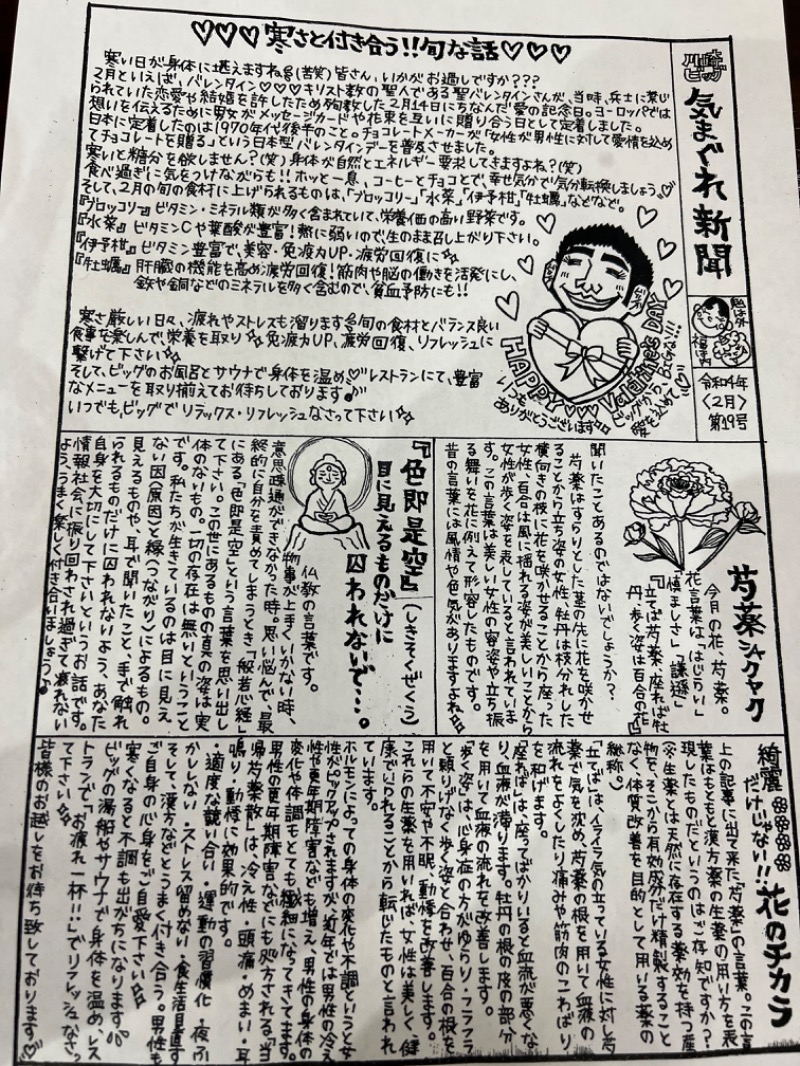 川崎ビッグ
気まぐれ新聞
鬼は外
福は内
令和4年
〈2月〉
第19号
♡♡♡寒さと付き合う!!旬な話♡♡♡
寒い日が身体に堪えますね(苦笑)皆さん、いかがお過しですか???
2月といえば、バレンタイン♡♡♡キリスト教の聖人である聖バレンタインさんが、当時、兵士に禁じ
られていた恋愛や結婚を許したため殉教した2月14日にちなんだ愛の記念日。ヨーロッパでは
想いを伝えるために男女がメッセージカードや花束を互いに贈り合う日として定着しました。
日本に定着したのは1970年代後半のこと。チョコレートメーカーが「女性が男性に対して愛情を込め
てチョコレートを贈る」という日本型バレンタインデーを普及させました。
寒いと糖分を欲しません?(笑)身体が自然とエネルギー要求してきますよね?(笑)
食べ過ぎに気をつけながらも!!ホッと一息、コーヒーとチョコとで、幸せ気分で気分転換しましょう♡
そして、2月の旬の食材に上げられるものは、「ブロッコリー」「水菜」「伊予柑」「牡蠣」などなど。
『ブロッコリー』ビタミン・ミネラル類が多く含まれていて、栄養価の高い野菜です。
『水菜』ビタミンCや葉酸が豊富!熱に弱いので生のまま召し上がり下さい。
『伊予柑』ビタミン豊富で、美容・免疫力UP・疲労回復に
『牡蠣』肝臓の機能を高め疲労回復!筋肉や脳の働きを活発にし、
鉄や銅などのミネラルを多く含むので、貧血予防にも!!
寒さ厳しい日々、疲れやストレスも溜ります旬の食材とバランス良い
食事を楽しんで、栄養を取り免疫力UP、疲労回復、リフレッシュに
繋げて下さい
そして、ビッグのお風呂とサウナで身体を温め♡レストランにて、豊富
なメニューを取り揃えてお待ちしております♪
いつでも、ビッグでリラックス・リフレッシュなさって下さい
HAPPY♡♡♡Valentine's DAY
いつも
ありがとうございます
ビッグから
愛を込めて
芍薬シャクヤク
今月の花、芍薬。
花言葉は、「はじらい」
「慎ましさ」「謙遜」
『立てば芍薬、座れば牡
丹、歩く姿は百合の花』
聞いたことあるのではないでしょうか?
芍薬はすらりとした茎の先に花を咲かせ
ることから立ち姿の女性、牡丹は枝分れした
横向きの枝に花を咲かせることから座った
女性、百合は風に揺れる姿が美しいことから
女性が歩く姿を表していると言われていま
す。この言葉は美しい女性の容姿や立ち振
る舞いを花に例えて形容したものです。
昔の言葉には風情や色気がありますよね
『色即是空』(しきそくぜくう)
目に見えるものだけに
囚われないで…。
仏教の言葉です。
物事が上手くいかない時、
意思疎通ができなかった時。思い悩んで、最
終的に自分を責めてしまうとき「般若心経」
にある「色即是空」という言葉を思い出し
て下さい。この世にあるものの真の姿は実
体のないもの。一切の存在は無いということ
です。私たちが生きているのは目に見え
ない因(原因)と縁(つながり)によるもの。
見えるものや、耳で聞いたこと、手で触れ
られるものだけに囚われないよう、あなた
自身を大切にして下さいというお話です。
情報社会に振り回わされ過ぎて、壊れない
よう、うまく楽しく付き合いましょう♪
綺麗
だけじゃない!!花のチカラ
上の記事に出て来た「芍薬」の言葉。この言
葉はもともと漢方薬の生薬の用い方を表
現したものだというのはご存知ですか?
(※生薬とは天然に存在する薬効を持つ産
物を、そこから有効成分だけ精製すること
なく、体質改善を目的として用いる薬の
総称。)
「立てば」は、イライラ気の立っている女性に対し芍
薬で気を沈め、芍薬の根を用いて血液の
流れをよくしたり痛みや筋肉のこわばり
を和げます。
「座れば」は、座ってばかりいると血流が悪くな
り、血液が滞ります。牡丹の根の皮の部分
を用いて血液の流れを改善します。
「歩く姿」は、心身症の方がゆらり・フラフラ
と頼りげなく歩く姿と合わせ、百合の根を
用いて不安や不眠、動悸を改善します。
これらの生薬を用いれば、女性は美しく、健
康でいられることから転じたものと言われ
ています。
ホルモンによっての身体の変化や不調というと女
性がピックアップされますが、近年では男性の冷え
性や更年期障害なども増え、男性の身体の
変化や体調もとても繊細になってきてます。
男性の更年期障害などにも処方される「当
帰芍薬散」は、冷え性・頭痛・めまい・耳
鳴り・動悸に効果的です。
・適度な競い合い・運動の習慣化・夜ふ
かししない・ストレス留めない・食生活見直す
そして、漢方などとうまく付き合う。男性も
ご自身の心身をご自愛下さい
寒くなると不調も出がちになります。
ビッグの湯船やサウナで身体を温め、レス
トランで「お疲れ一杯!!」でリフレッシュなさっ
て下さい
皆様のお越しをお待ち致しております♡